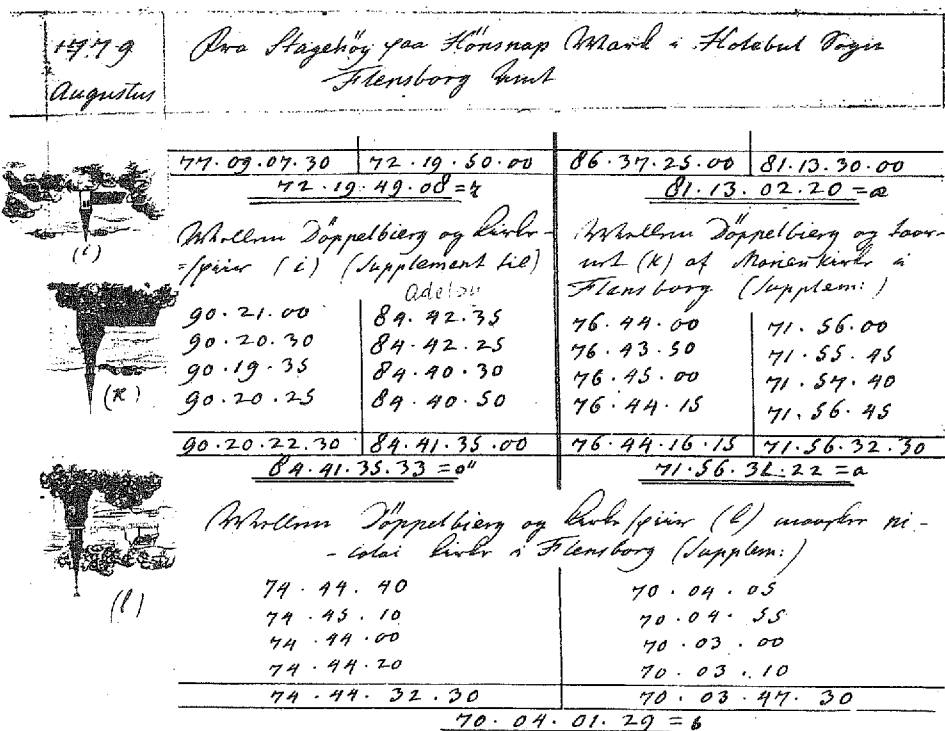 1779
Augustus
Fra Stagehöy paa Hönsnap Mark i Holebul Sogn
Flensborg Amt
77.09.07.30 72.19.50.00
72.19.49.08 =
86.37.25.00 81.13.30.00
81.13.02.20 =
(i)
Mellem Döppelbierg og Kirke-
=spiir (i) (Supplement til)
Adelbÿ
90.21.00 84.42.35
90.20.30 84.42.25
90.19.35 84.40.30
90.20.25 84.40.50
90.20.22.30 84.41.35.00
84.41.35.33 = o"
Mellem Döppelbierg og taar-
net (K) af Marien Kirke i
Flensborg (Supplem:)
76.44.00 71.56.00
76.43.50 71.55.45
76.45.00 71.57.40
76.44.15 71.56.45
76.44.16.15 71.56.32.30
71.56.32.22 = a
(K)
Mellem Döppelbierg og Kirke spiir (l) maaskee ni-
-colai Kirke i Flensborg (Supplem:)
(l)
74.44.40 70.04.05
74.45.10 70.04.55
74.44.00 70.03.00
74.44.20 70.03.10
74.44.32.30 70.03.47.30
70.04.01.29 = b